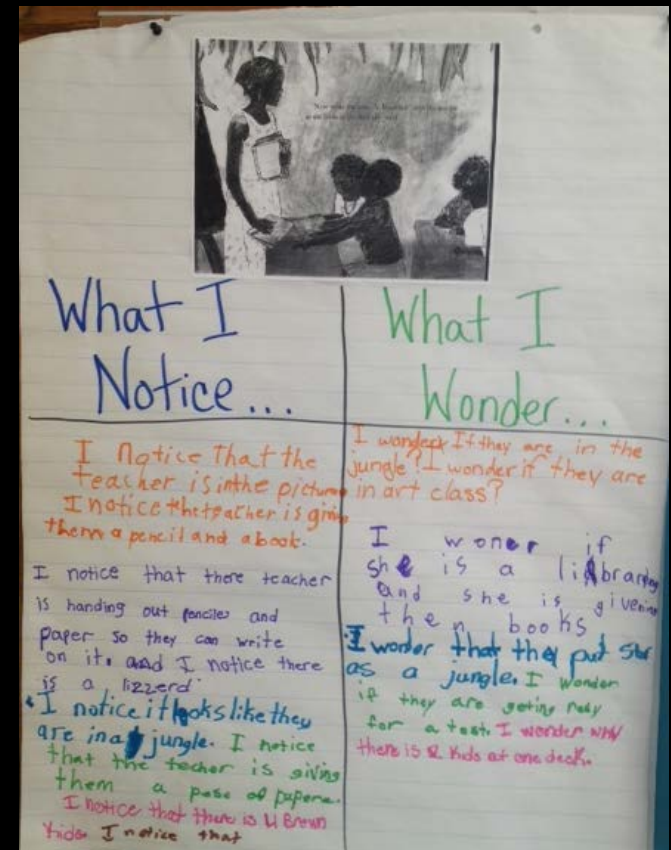 What I
Notice...
I notice That the
teacher is inthe picture
I notice theteacher is givin
them a pencil and a book.
I notice that there teacher
is handing out penciles and
paper so they can write
on it. and I notice there
is a lizzerd
I notice it looks like they
are in a jungle. I notice
that the techer is giving
them a pese of papere.
I notice that there is 4 Brown
kids. I notice that
What I
Wonder...
I wonder If they are in the
jungle? I wonder if they are
in art class?
I woner if
she is a librarien
and she is givening
then books
I wonder that they put
as a jungle. I wonder
if they are geting redy
for a test. I wonder why
there is 2 kids at one deck.